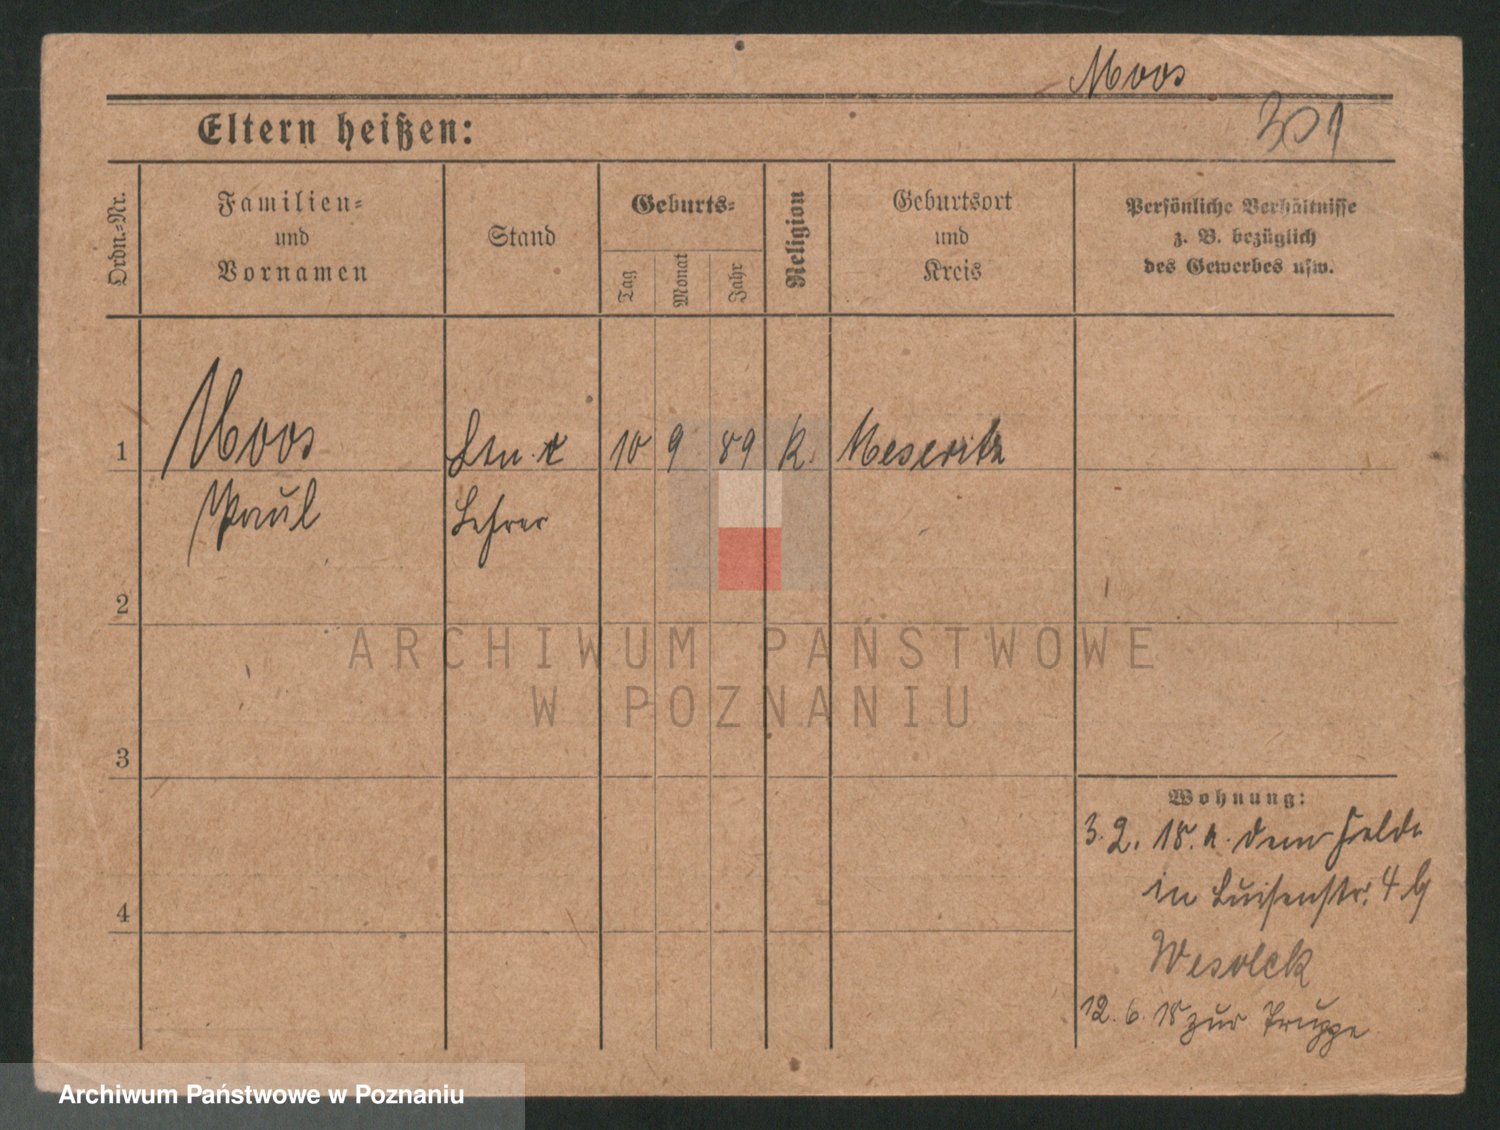 Moos
301
Eltern heißen:
Ordn.-Nr.
Familien-
und
Vornamen
Stand
Geburts-
Tag
Monat
Jahr
Religion
Geburtsort
und
Kreis
Persönliche Verhältnisse
z. B. bezüglich
des Gewerbes usw.
1
Moos
Ltn.
10
9
89
K.
Meseritz
Paul
Lehrer
2
ARCHIWUM PAŃSTWOWE
W POZNANIU
3
Wohnung:
3. 2. 18. a. dem Felde
in Luisenstr. 4 b
Wesolek
12. 6. 18 zur Truppe
4
Archiwum Państwowe w Poznaniu